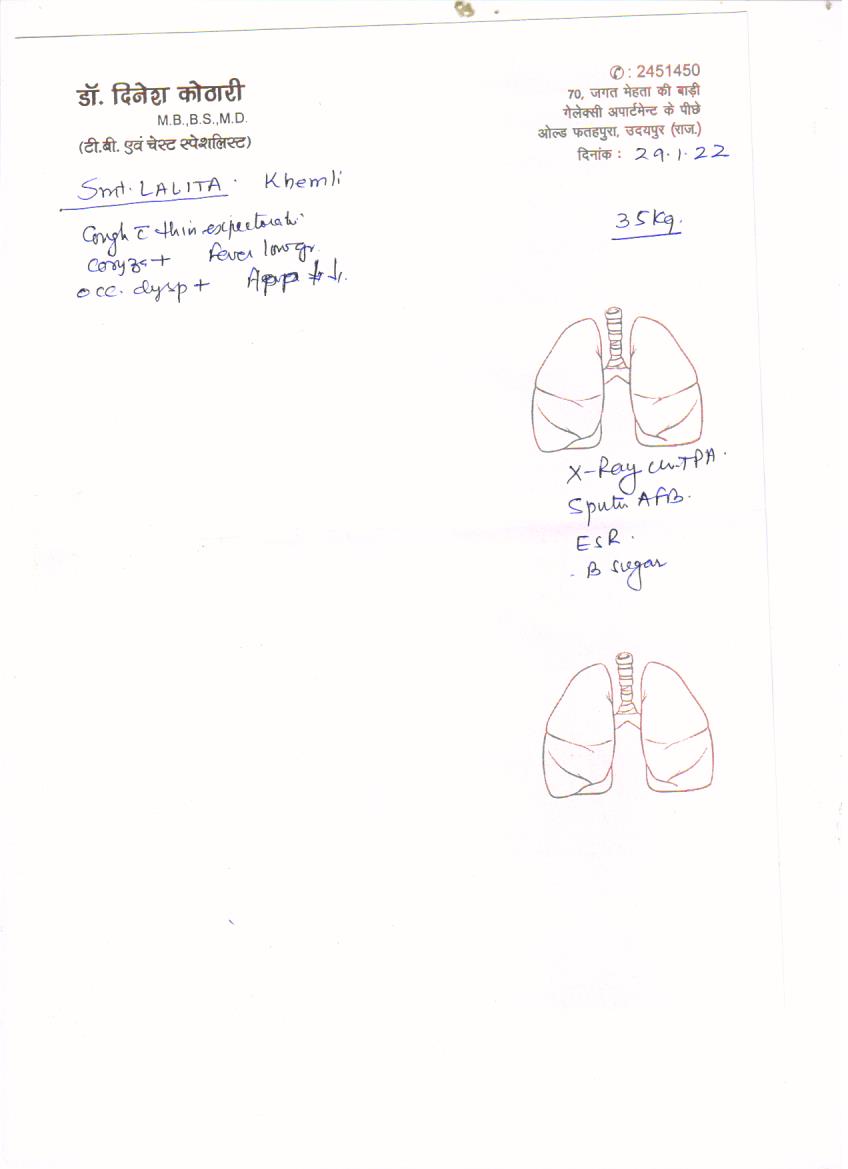 डॉ. दिनेश कोठारी
M.B.,B.S.,M.D.
(टी.बी. एवं चेस्ट स्पेशलिस्ट)
✆: 2451450
70, जगत मेहता की बाड़ी
गेलेक्सी अपार्टमेन्ट के पीछे
ओल्ड फतहपुरा, उदयपुर (राज.)
दिनांक : 29.1.22
Smt. LALITA. Khemli
35Kg.
Cough c̄ thin expectorati.
Coryza+ Fever lowgr.
occ. dysp+ App ↓.
X-Ray PA.
Sputu AFB.
ESR.
B sugar